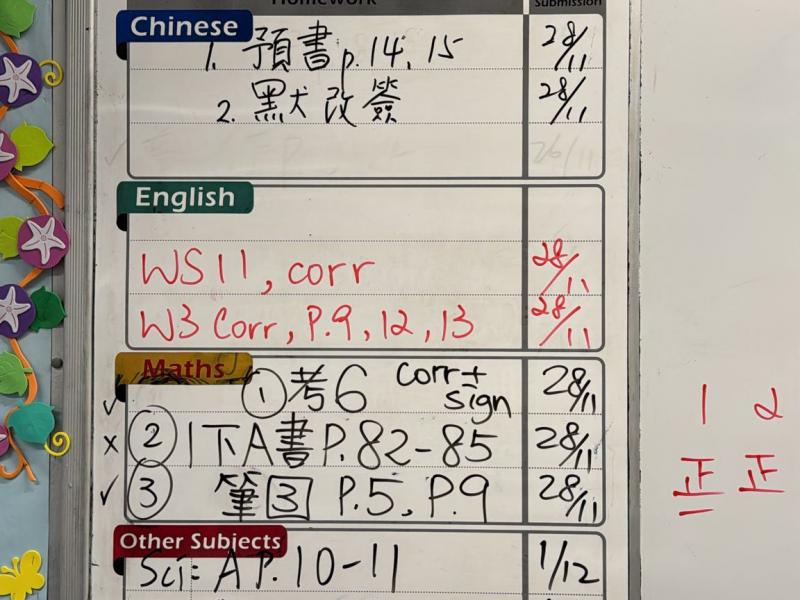 Homework Submission
Chinese
1. 預書p.14, 15 28/11
2. 默改簽 28/11
26/11
English
WS11, corr 28/11
W3 Corr, P.9, 12, 13 28/11
Maths
✓ ① 考6 corr+ sign 28/11
x ② 1下A書P.82-85 28/11
✓ ③ 筆③ P.5, P.9 28/11
1 2
正 正
Other Subjects
Sci: A P.10-11 1/12